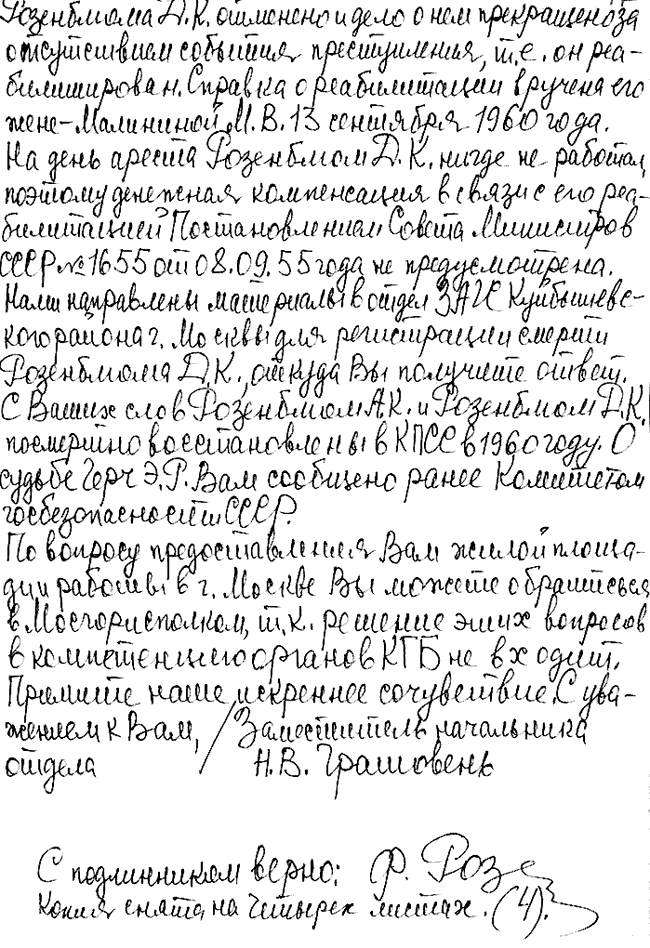 Розенблюма Д.К. отменено и дело о нем прекращено за
отсутствием события преступления, т.е. он реа-
билитирован. Справка о реабилитации вручена его
жене - Малининой М.В. 13 сентября 1960 года.
На день ареста Розенблюм Д.К. нигде не работал,
поэтому денежная компенсация в связи с его реа-
билитацией Постановлением Совета Министров
СССР №1655 от 08.09.55 года не предусмотрена.
Нами направлены материалы в отдел ЗАГС Куйбышевс-
кого района г. Москвы для регистрации смерти
Розенблюма Д.К., откуда Вы получите ответ.
С Ваших слов Розенблюм А.К. и Розенблюм Д.К.
посмертно восстановлены в КПСС в 1960 году. О
судьбе Герч Э.Р. Вам сообщено ранее Комитетом
госбезопасности СССР.
По вопросу предоставления Вам жилой площа-
ди и работы в г. Москве Вы можете обратиться
в Мосгорисполком, т.к. решение этих вопросов
в компетенцию органов КГБ не входит.
Примите наше искреннее сочувствие. С ува-
жением к Вам, / Заместитель начальника
отдела Н.В. Грашовень
С подлинником верно: Ф. Розе
Копия снята на четырех листах. (4).